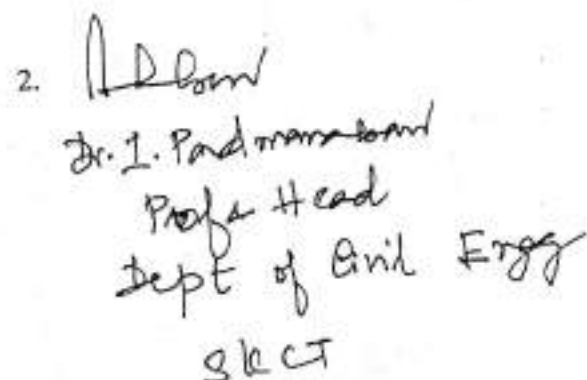 2.
Dr. I. Padmanaban
Prof & Head
Dept of Civil Engg
SKCT